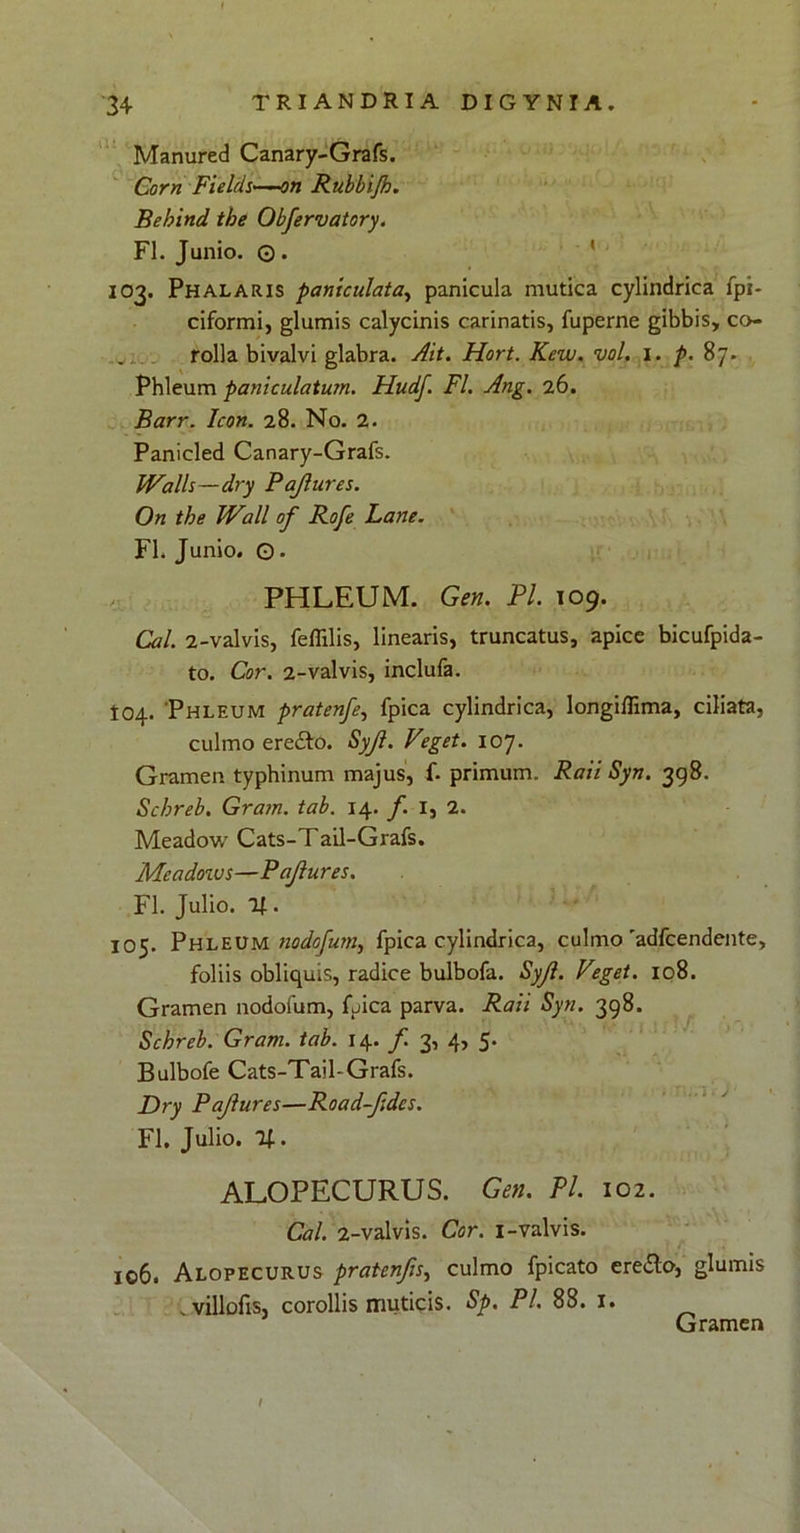 34 TRIANDRIA DIGYNIA.
Manured Canary-Graſs.
Corn Fields—on Rubbiſh.
Behind the Obſervatory.
Fl. Junio. ☉.
103. Phalaris paniculata, panicula mutica cylindrica ſpi-
ciformi, glumis calycinis carinatis, ſuperne gibbis, co-
rolla bivalvi glabra. Ait. Hort. Kew. vol. 1. p. 87.
Phleum paniculatum. Hudſ. Fl. Ang. 26.
Barr. Icon. 28. No. 2.
Panicled Canary-Graſs.
Walls—dry Paſtures.
On the Wall of Roſe Lane.
Fl. Junio. ☉.
PHLEUM. Gen. Pl. 109.
Cal. 2-valvis, ſeſſilis, linearis, truncatus, apice bicuſpida-
to. Cor. 2-valvis, incluſa.
104. Phleum pratenſe, ſpica cylindrica, longiſſima, ciliata,
culmo erecto. Syſt. Veget. 107.
Gramen typhinum majus, ſ. primum. Raii Syn. 398.
Schreb. Gram. tab. 14. f. 1, 2.
Meadow Cats-Tail-Graſs.
Meadows—Paſtures.
Fl. Julio. ♃.
105. Phleum nodoſum, ſpica cylindrica, culmo adſcendente,
foliis obliquis, radice bulboſa. Syſt. Veget. 108.
Gramen nodoſum, ſpica parva. Raii Syn. 398.
Schreb. Gram. tab. 14. f. 3, 4, 5.
Bulboſe Cats-Tail-Graſs.
Dry Paſtures—Road-ſides.
Fl. Julio. ♃.
ALOPECURUS. Gen. Pl. 102.
Cal. 2-valvis. Cor. 1-valvis.
106. Alopecurus pratenſis, culmo ſpicato erecto, glumis
villoſis, corollis muticis. Sp. Pl. 88. 1.
Gramen